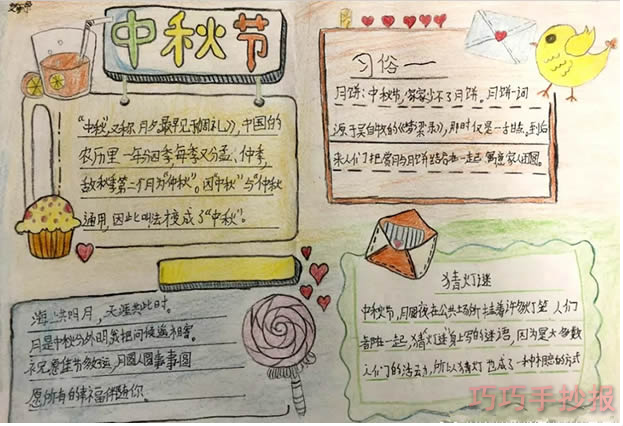 中秋节
"中秋"又称月夕,最早见于《周礼》,中国的
农历里一年分四季每季又分孟、仲季,
故秋季第二个月为"仲秋"。因"中秋"与"仲秋
通用,因此叫法楼成了"中秋"。
习俗一
月饼:中秋节,家家少不了月饼。月饼一词
源于吴自牧的《梦粱录》,那时仅是一古饼,到后
来人们把赏月与月饼结合在一起,寓意家人团圆。
海洪明月,天涯共此时。
月是中秋分外明我把问候遥相寄
祝愿佳节多好运,月圆人圆事事圆
愿所有的幸福伴随你。
猜灯谜
中秋节,月圆夜在公共场所挂着许多灯笼 人们
都在一起,猜灯谜身上写的谜语,因为是大多数
人们的活动,所以猜灯 也成了一种相恋的方式
巧巧手抄报